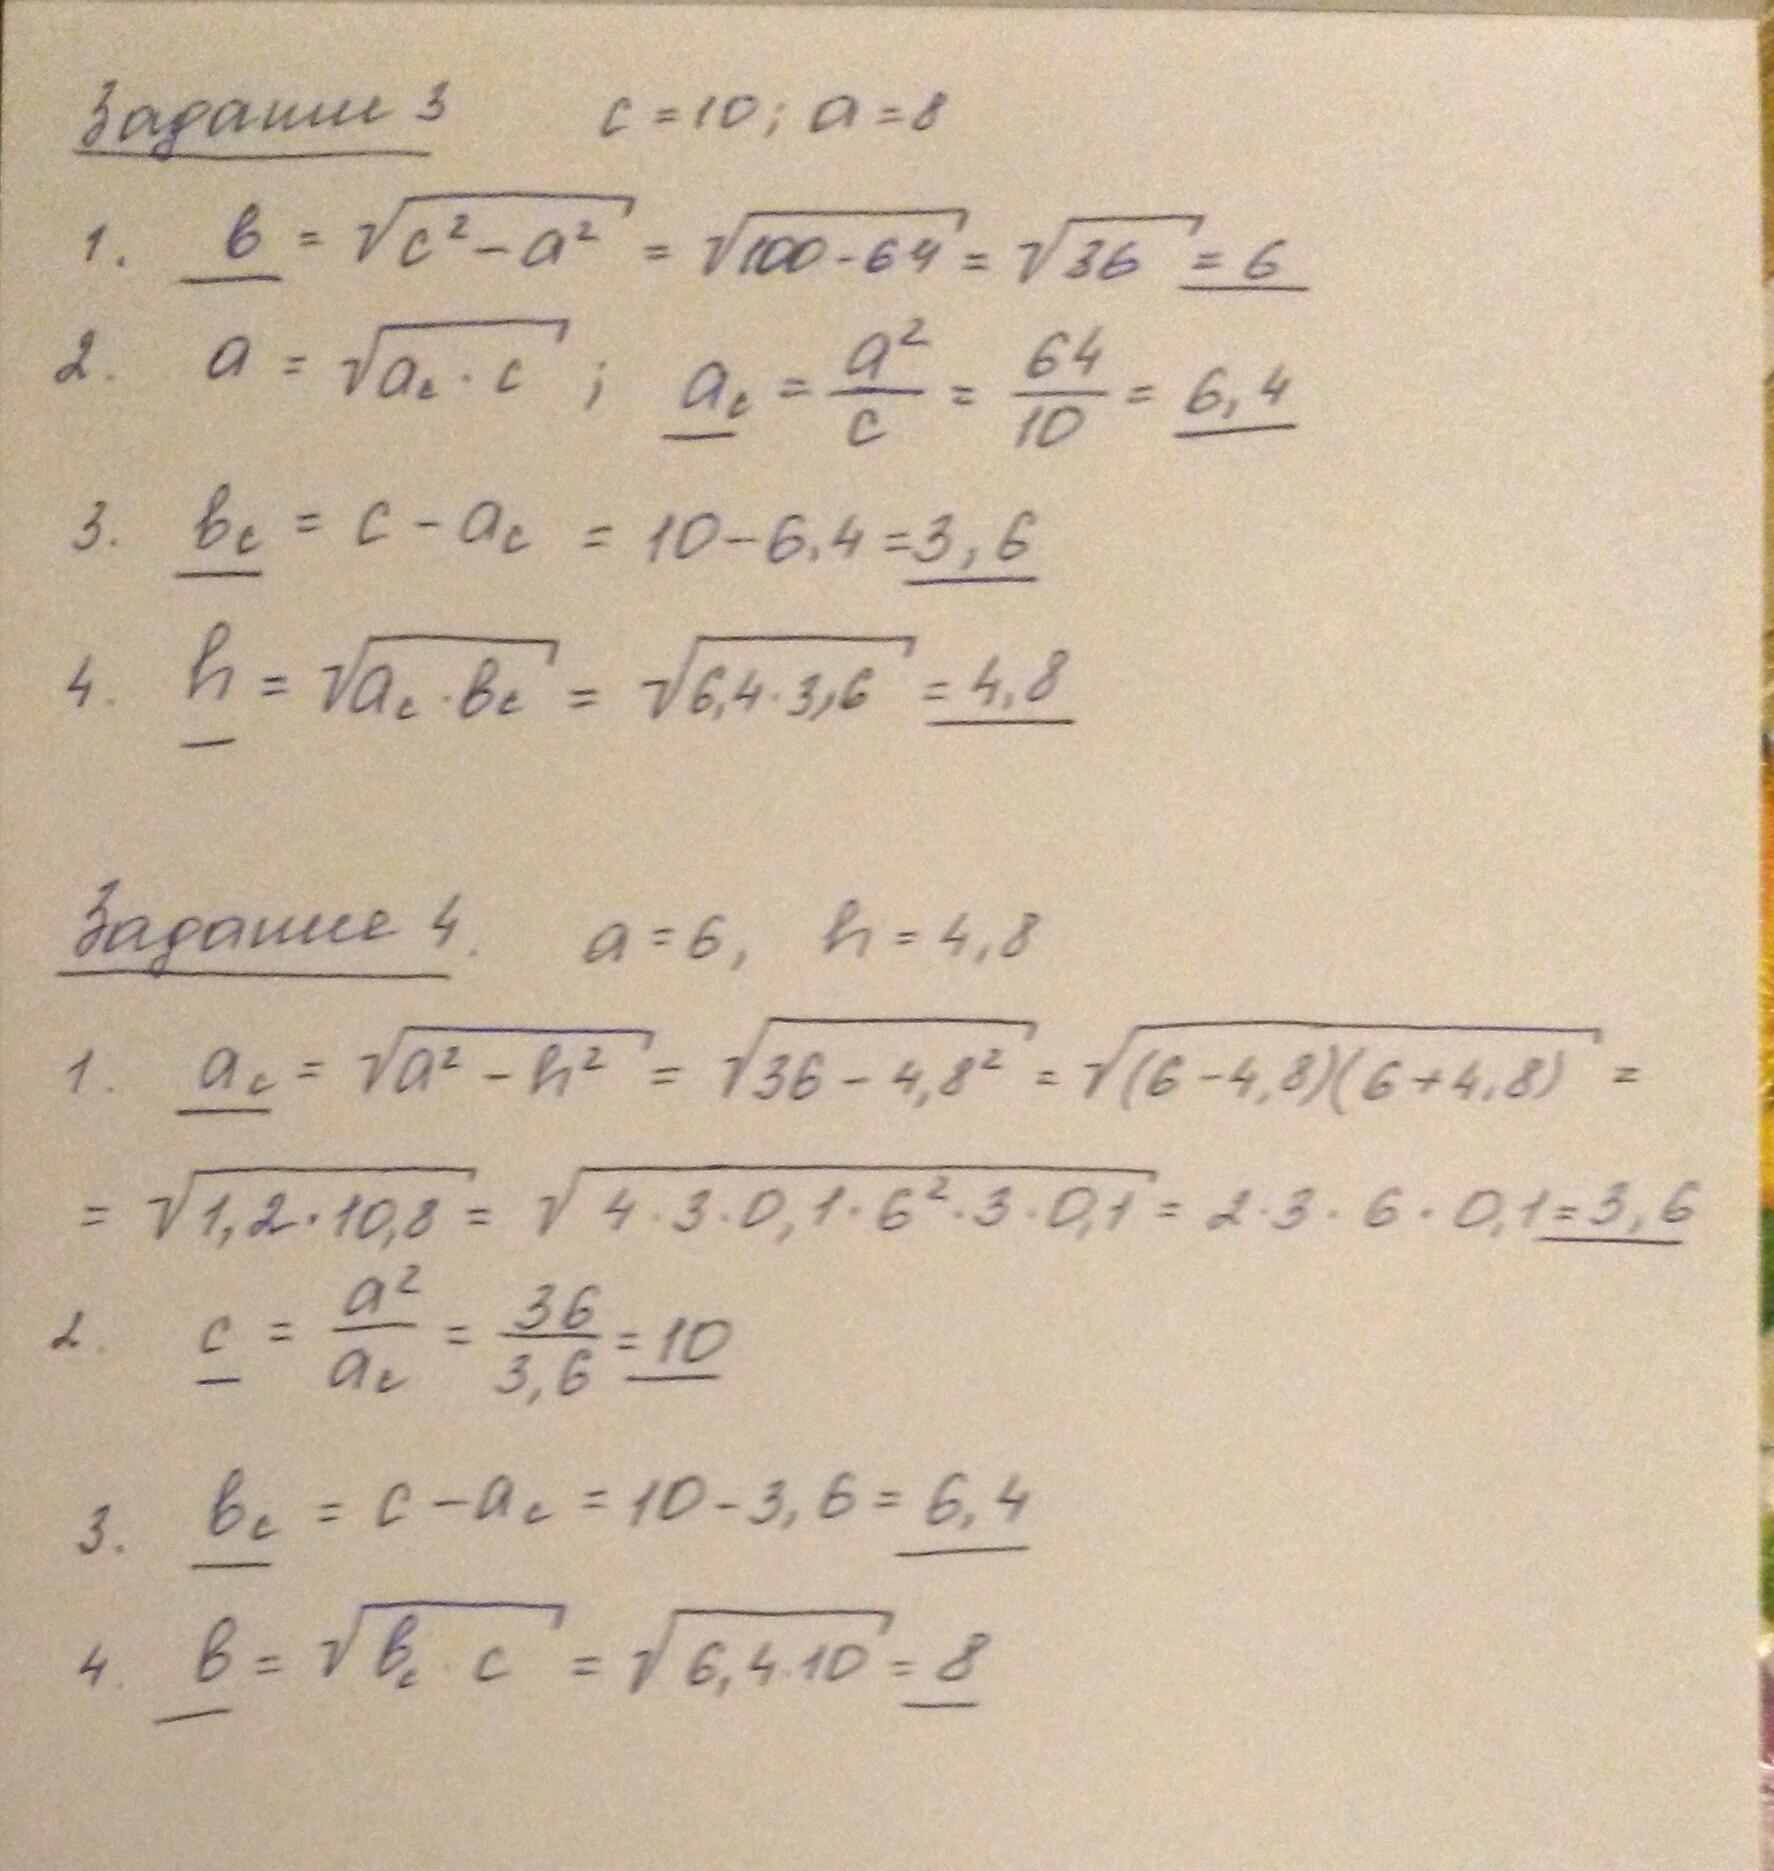 Задание 3 c = 10; a = 8
1. в = √(c² - a²) = √(100 - 64) = √36 = 6
2. a = √(a_c · c) ; a_c = a²/c = 64/10 = 6,4
3. в_c = c - a_c = 10 - 6,4 = 3,6
4. h = √(a_c · в_c) = √(6,4 · 3,6) = 4,8
Задание 4. a = 6, h = 4,8
1. a_c = √(a² - h²) = √(36 - 4,8²) = √((6 - 4,8)(6 + 4,8)) =
= √(1,2 · 10,8) = √(4 · 3 · 0,1 · 6² · 3 · 0,1) = 2 · 3 · 6 · 0,1 = 3,6
2. c = a²/a_c = 36/3,6 = 10
3. в_c = c - a_c = 10 - 3,6 = 6,4
4. в = √(в_c · c) = √(6,4 · 10) = 8